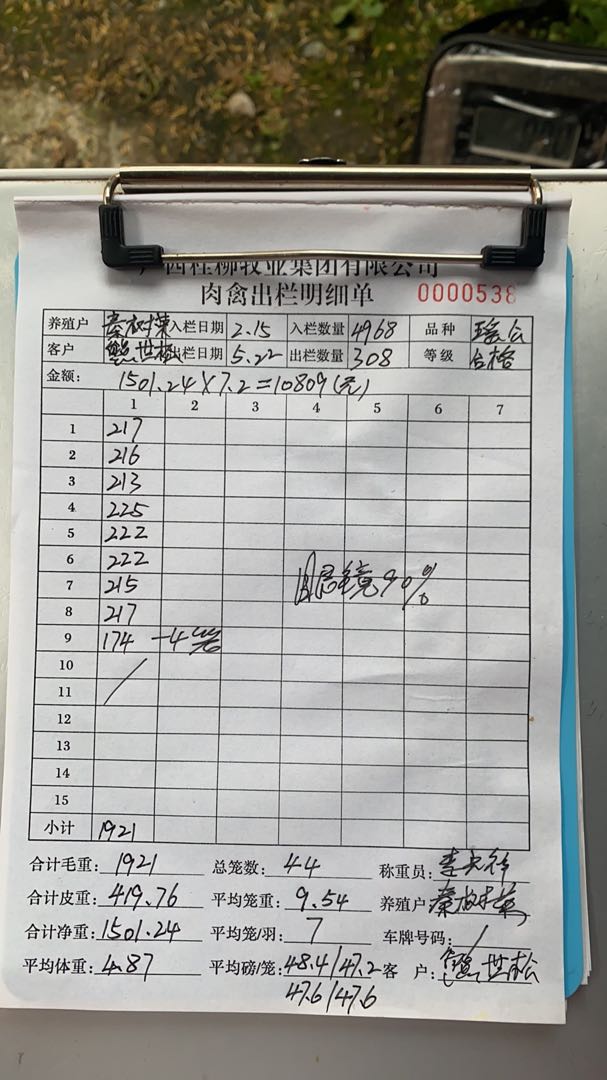 广西桂柳牧业集团有限公司
肉禽出栏明细单 0000538
养殖户 秦树荣 入栏日期 2.15 入栏数量 4968 品种 瑶公
客户 熊世松 出栏日期 5.22 出栏数量 308 等级 合格
金额: 1501.24×7.2=10809(元)
1 2 3 4 5 6 7
1 217
2 216
3 213
4 225
5 222
6 222
7 215 眼镜90%
8 217
9 174 -4笼
10
11
12
13
14
15
小计 1921
合计毛重: 1921 总笼数: 44 称重员:
合计皮重: 419.76 平均笼重: 9.54 养殖户 秦树荣
合计净重: 1501.24 平均笼/羽: 7 车牌号码: /
平均体重: 4.87 平均磅/笼: 48.4/47.2 客 户: 熊世松
47.6/47.6